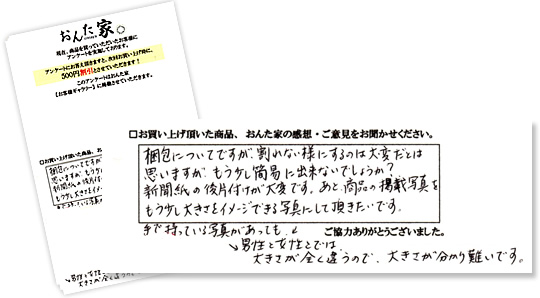 おんた家。
現在、商品を買っていただいたお客様に
アンケートを実施しております。
アンケートにお答え頂きますと、次回お買い上げ時に、
500円割引とさせていただきます!
このアンケートはおんた家
【お客様ギャラリー】に掲載させていただきます。
□お買い上げ頂いた商品、お
梱包についてですが
思いますが、もう少し
新聞紙の後片付
もう少し大きさをイメ
手で持っている写真
↳男性と女性
大きさが全く違うの
□お買い上げ頂いた商品、おんた家の感想・ご意見をお聞かせください。
梱包についてですが、割れない様にするのは大変だとは
思いますが、もう少し簡易に出来ないでしょうか?
新聞紙の後片付けが大変です。あと、商品の掲載写真を
もう少し大きさをイメージできる写真にして頂きたいです。
手で持っている写真があっても、↙
ご協力ありがとうございました。
↘男性と女性とでは、
大きさが全く違うので、大きさが分かり難いです。